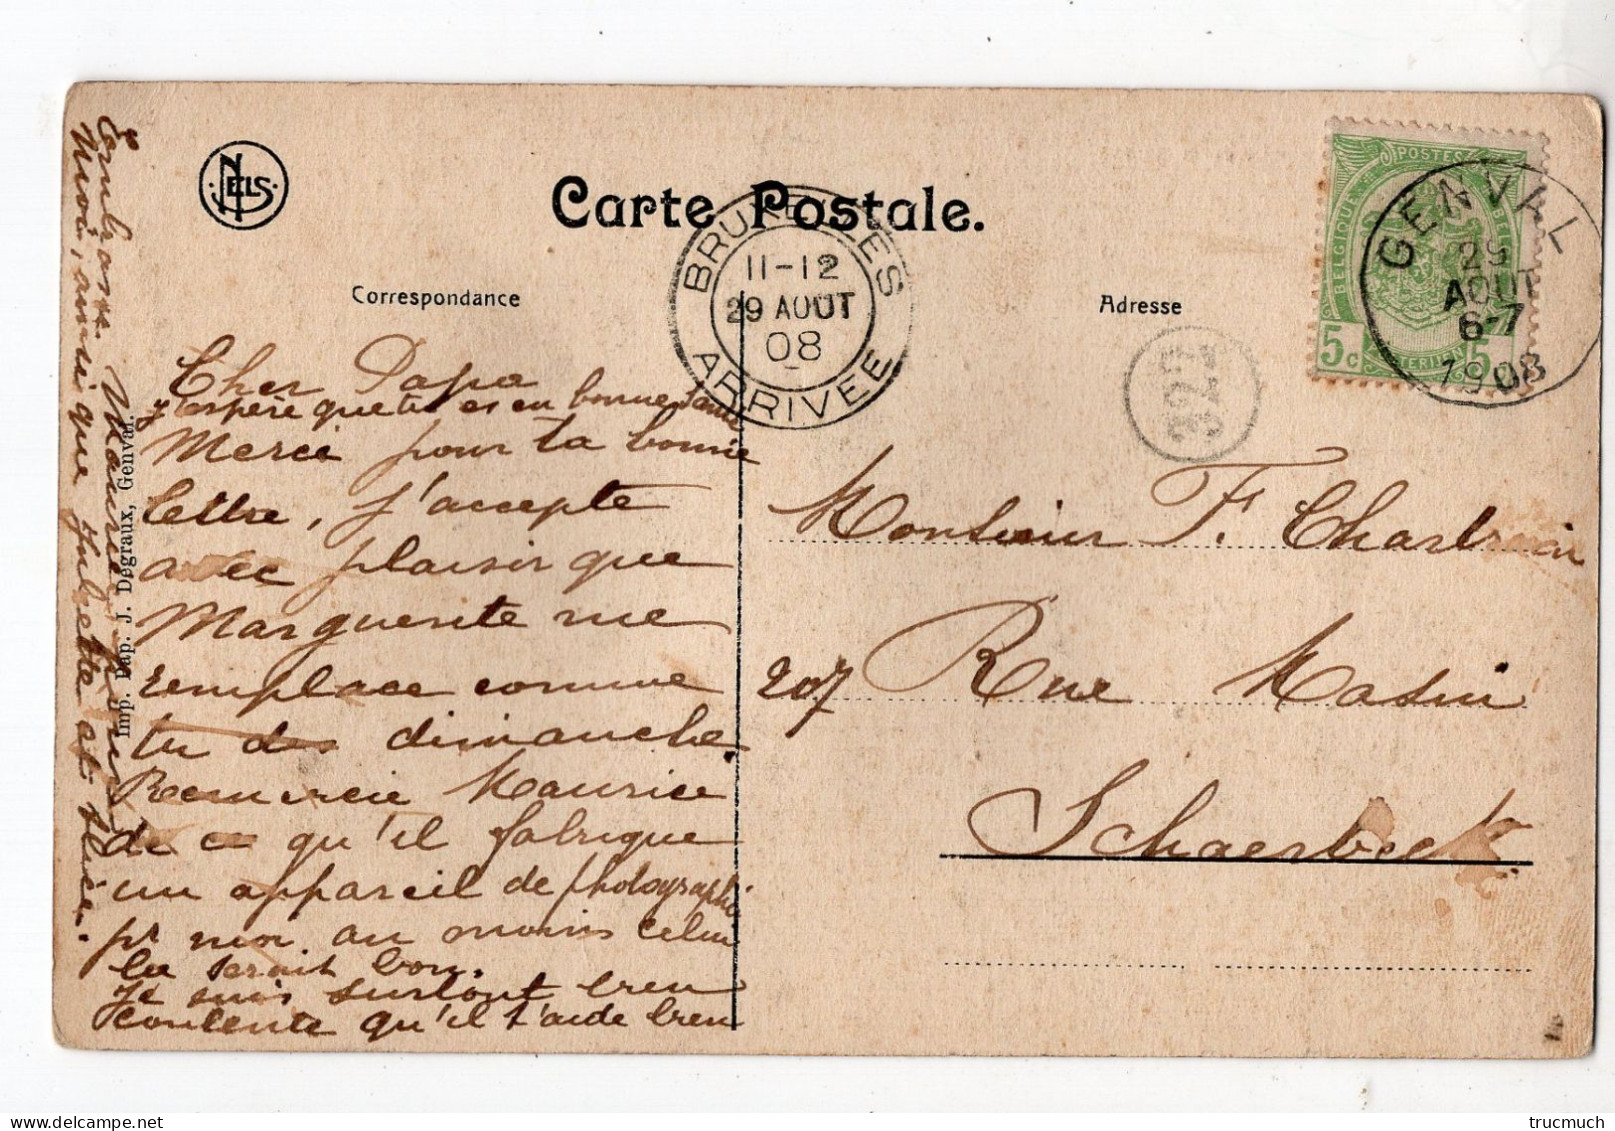 NELS
Carte Postale.
Correspondance
Adresse
BRUXELLES
11-12
29 AOUT
08
ARRIVEE
POSTES
BELGIQUE
BELGIE
5c
5c
GENVAL
29
AOUT
6-7
1908
322
Cher Papa
J'espère que tu es en bonne santé
Merci pour ta bonne
lettre, j'accepte
avec plaisir que
Marguerite me
remplace comme
tu des dimanche.
Remercie Maurice
de ce qu'il fabrique
un appareil de photographie
pr moi au moins celui
la serait bon.
Je suis surtout bien
contente qu'il t'aide bien
Embrasse Maurice pour
Moi, ainsi que Juliette et Alice.
Imp. Pap. J. Degraux, Genval.
Monsieur F. Chartrain
207 Rue Masui
Schaerbeek
trucmuch